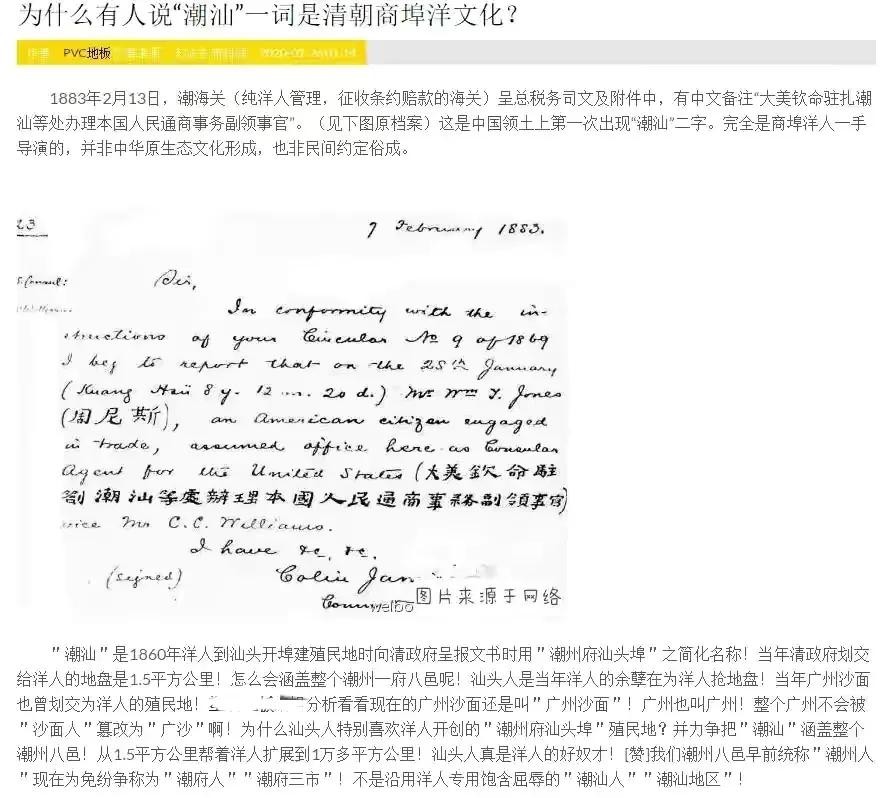 为什么有人说“潮汕”一词是清朝商埠洋文化？
PVC地板
2020-02-26 01:14
1883年2月13日，潮海关（纯洋人管理，征收条约赔款的海关）呈总税务司文及附件中，有中文备注“大美钦命驻扎潮
汕等处办理本国人民通商事务副领事官”。（见下图原档案）这是中国领土上第一次出现“潮汕”二字。完全是商埠洋人一手
导演的，并非中华原生态文化形成，也非民间约定俗成。
23
7 February 1883.
Sir,
In conformity with the in-
structions of your Circular No 9 of 1869
I beg to report that on the 25th January
(Kuang Hsü 8 y. 12 m. 20 d.) Mr Wm Y. Jones
(周尼斯), an American citizen engaged
in trade, assumed office here as Consular
Agent for the United States (大美欽命駐
劄潮汕等處辦理本國人民通商事務副領事官)
vice Mr C. C. Williams.
I have &c, &c.
(signed) Colin Jam
weibo
图片来源于网络
＂潮汕＂是1860年洋人到汕头开埠建殖民地时向清政府呈报文书时用＂潮州府汕头埠＂之简化名称！当年清政府划交
给洋人的地盘是1.5平方公里！怎么会涵盖整个潮州一府八邑呢！汕头人是当年洋人的余孽在为洋人抢地盘！当年广州沙面
也曾划交为洋人的殖民地！分析看看现在的广州沙面还是叫＂广州沙面＂！广州也叫广州！整个广州不会被
＂沙面人＂篡改为＂广沙＂啊！为什么汕头人特别喜欢洋人开创的＂潮州府汕头埠＂殖民地？并力争把＂潮汕＂涵盖整个
潮州八邑！从1.5平方公里帮着洋人扩展到1万多平方公里！汕头人真是洋人的好奴才！[赞]我们潮州八邑早前统称＂潮州人
＂现在为免纷争称为＂潮府人＂＂潮府三市＂！不是沿用洋人专用饱含屈辱的＂潮汕人＂＂潮汕地区＂！